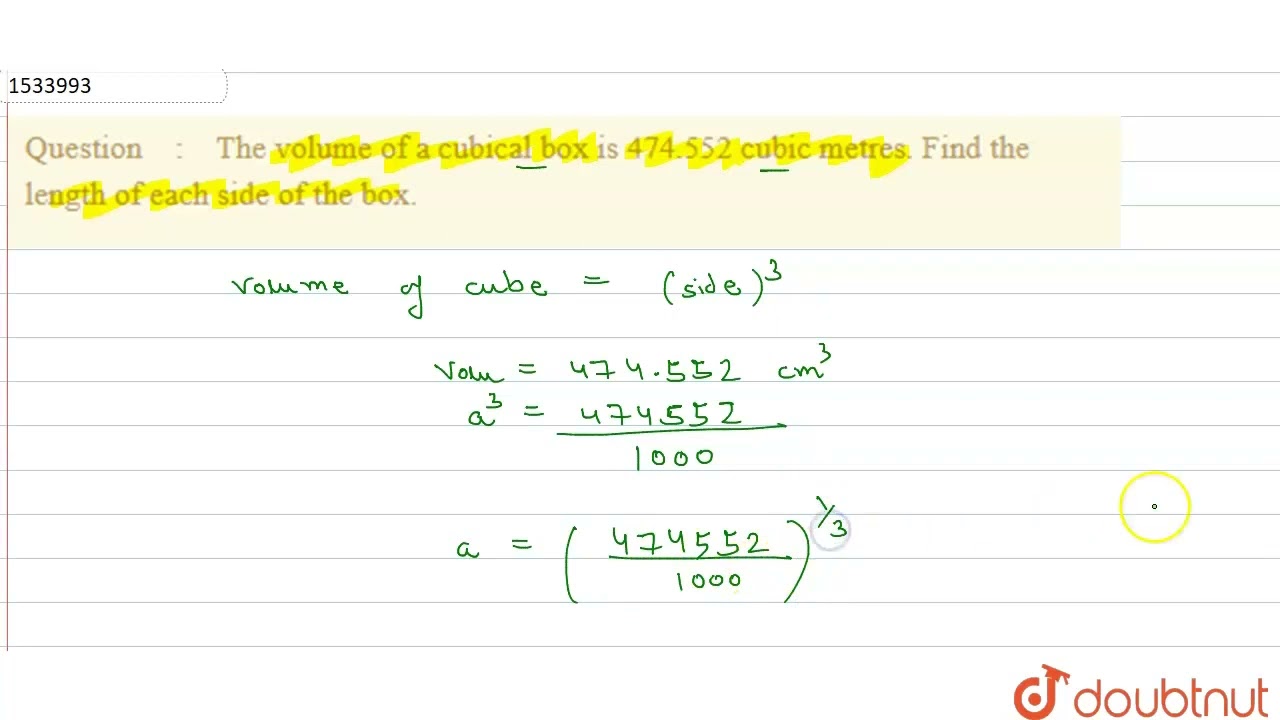 1533993
Question : The volume of a cubical box is 474.552 cubic metres. Find the
length of each side of the box.
volume of cube = (side)³
Volu = 474.552 cm³
a³ = 474552
1000
a = (474552
1000)^1/3
doubtnut